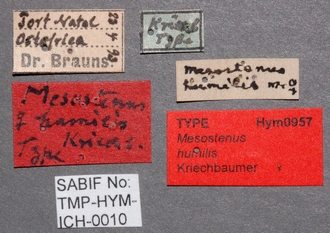 Port Natal
Ostafrica
Dr. Brauns.
Kriechb.
Type
Mesostenus
humilis
Mesostenus
♀ humilis
Kriechb.
Type
TYPE Hym0957
Mesostenus
humilis
Kriechbaumer
SABIF No:
TMP-HYM-
ICH-0010